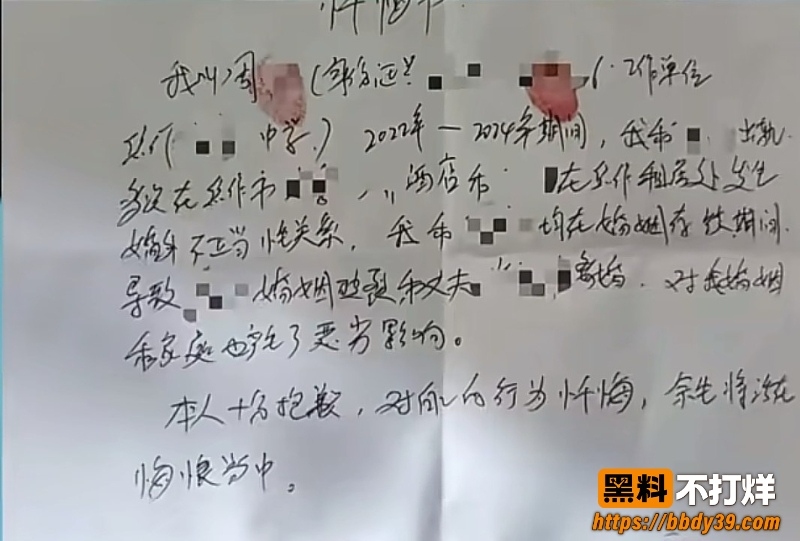 忏悔书
我叫周 (身份证 工作单位
中学) 2022年—2024年期间, 我和 出轨
多次在焦作市 酒店和 在焦作租房处发生
婚外不正当性关系, 我和 均在婚姻存续期间
导致 婚姻破裂和丈夫 离婚. 对我婚姻
和家庭也产生了恶劣影响。
本人十分抱歉, 对自己的行为忏悔, 余生将活在
悔恨当中。
黑料不打烊
https://bbdy39.com